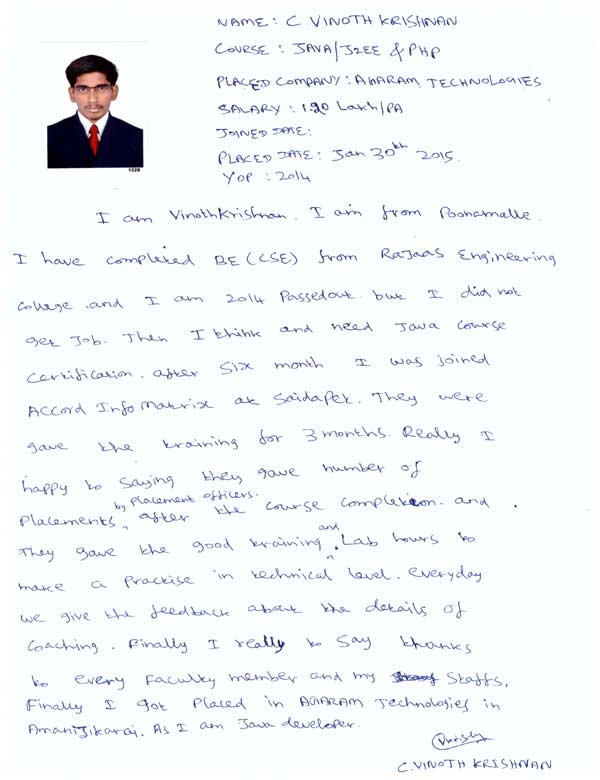 NAME: C VINOTH KRISHNAN
COURSE : JAVA/J2EE & PHP
PLACED COMPANY : AGARAM TECHNOLOGIES
SALARY : 1.20 Lakh/PA
JOINED DATE:
PLACED DATE: Jan 30th 2015.
YOP : 2014
1328
I am VinothKrishnan. I am from Poonamalle.
I have completed BE(CSE) from Rajaas Engineering
College. and I am 2014 Passedout. but I did not
get Job. Then I think and need Java Course
Certification. after six month I was joined
Accord Info Matrix at Saidapet. They were
gave the training for 3 months. Really I
happy to saying they gave number of
by Placement officers.
Placements, after the course completion. and
and
They gave the good training. Lab hours to
make a Practise in technical level. everyday
we give the feedback about the details of
Coaching. Finally I really to Say thanks
to every Faculty member and my Staffs.
Finally I got Placed in AGARAM Technologies in
Amanijikarai. As I am Java developer.
C.VINOTH KRISHNAN